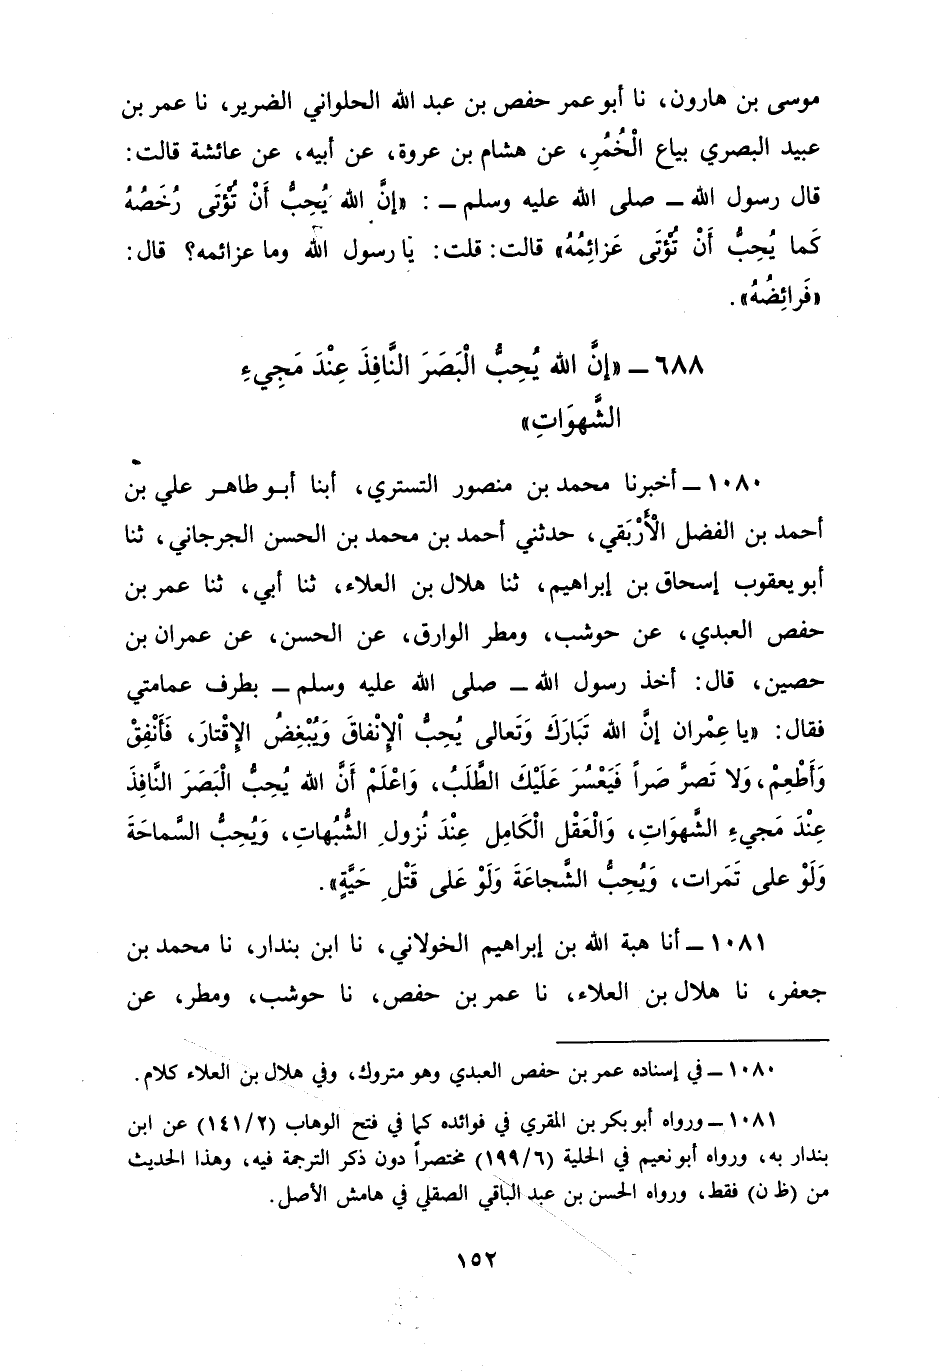 موسى بن هارون، نا أبو عمر حفص بن عبد الله الحلواني الضرير، نا عمر بن
عبيد البصري بياع الْخُمُرِ، عن هشام بن عروة، عن أبيه، عن عائشة قالت:
قال رسول الله ــ صلى الله عليه وسلم ــ : «إنَّ الله يُحِبُّ أَنْ تُؤْتَى رُخَصُهُ
كَما يُحِبُّ أَنْ تُؤْتَى عَزائِمُهُ» قالت: قلت: يا رسول الله وما عزائمه؟ قال:
«فَرائِضُهُ».
٦٨٨ ــ «إنَّ الله يُحِبُّ الْبَصَرَ النَّافِذَ عِنْدَ مَجِيءِ
الشَّهوَاتِ»
١٠٨٠ ــ أخبرنا محمد بن منصور التستري، أبنا أبو طاهر علي بن
أحمد بن الفضل الْأَرْبَقي، حدثني أحمد بن محمد بن الحسن الجرجاني، ثنا
أبو يعقوب إسحاق بن إبراهيم، ثنا هلال بن العلاء، ثنا أبي، ثنا عمر بن
حفص العبدي، عن حوشب، ومطر الوارق، عن الحسن، عن عمران بن
حصين، قال: أخذ رسول الله ــ صلى الله عليه وسلم ــ بطرف عمامتي
فقال: «يا عِمْران إنَّ الله تَبَارَكَ وَتَعالى يُحِبُّ اْلإِنْفاقَ وَيُبْغِضُ الإِقْتارَ، فَأَنْفِقْ
وَأَطْعِمْ، وَلا تَصرَّ صَراً فَيَعْسُرَ عَلَيْكَ الطَّلَبُ، وَاعْلَمْ أَنَّ الله يُحِبُّ الْبَصَرَ النَّافِذَ
عِنْدَ مَجيءِ الشَّهوَاتِ، وَالْعَقْل الْكَامِلِ عِنْدَ نُزولِ الشُّبُهاتِ، وَيُحِبُّ السَّماحَةَ
وَلَوْ على تَمَرات، وَيُحِبُّ الشَّجاعَةَ وَلَوْ عَلى قَتْلِ حَيَّةٍ».
١٠٨١ ــ أنا هبة الله بن إبراهيم الخولاني، نا ابن بندار، نا محمد بن
جعفر، نا هلال بن العلاء، نا عمر بن حفص، نا حوشب، ومطر، عن
١٠٨٠ ــ في إسناده عمر بن حفص العبدي وهو متروك، وفي هلال بن العلاء كلام.
١٠٨١ ــ ورواه أبو بكر بن المقري في فوائده كما في فتح الوهاب (١٤١/٢) عن ابن
بندار به، ورواه أبو نعيم في الحلية (١٩٩/٦) مختصراً دون ذكر الترجمة فيه، وهذا الحديث
من (ظ ن) فقط، ورواه الحسن بن عبد الباقي الصقلي في هامش الأصل.
١٥٢